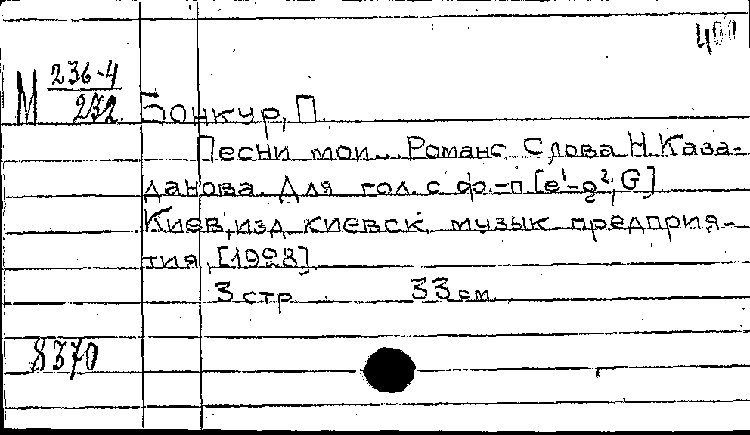 400
М 236-4
232
Бонкур, П.
Песни мои... Романс. Слова Н. Каза-
данова. Для гол. с ф.-п. [e¹-g², G]
Киев, изд. киевск. музык. предприя-
тия, [1928].
3 стр. 33 см.
8370